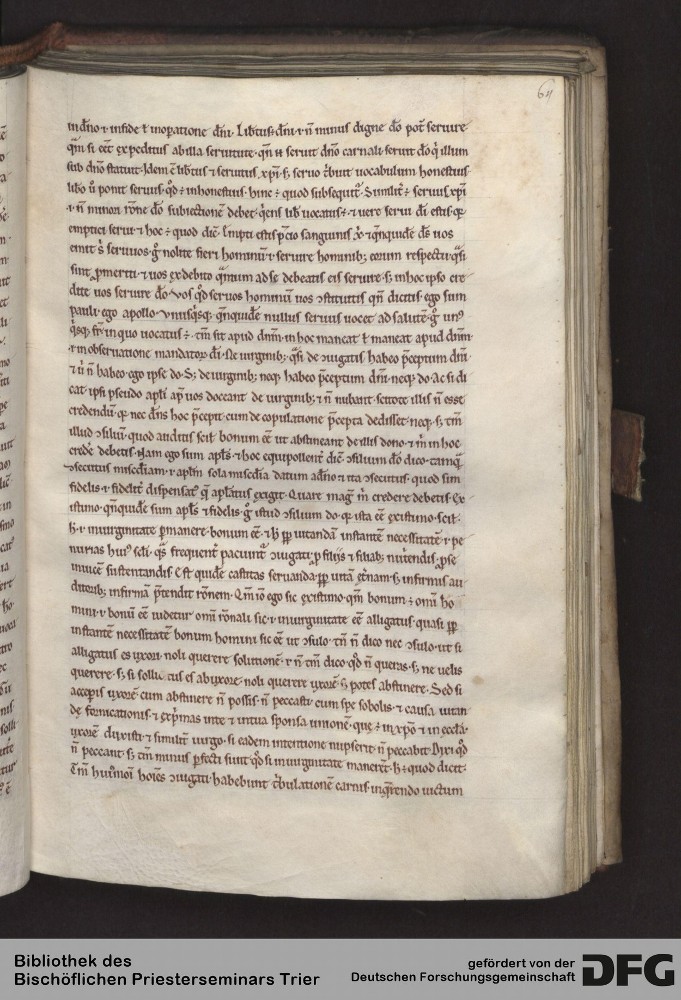 64
in dño · ı · in fide ł in oꝑatione dñi · Libtus · dñi · ı · ñ minus digne dõ pot̃ seruire
q̃m si eẽt expeditus ab illa seruitute · q̃m ñ seruit dño carnali · seruit dõ q̃ illum
sub dño statuit · Idem ẽ libtus ⁊ seruitus xp̃i · s; seruo t̃buit uocabulum honestius
libo ũ ponit seruus · qd̃ ÷ inhonestius · hinc ÷ quod subsequit᷑ · Similit̃ ÷ seruus xp̃i
· ı · ñ minori rõne dõ subiectionẽ debet · uocatus ÷ · ⁊ uere serui dĩ estis · q̃
empticii serui · ⁊ hoc ÷ quod dic̃ · Empti estis p̃cio sanguinis
emit s̃ seruuos · g̊ nolite fieri hominũ · ı · seruire hominib; eorum respectu
sint · ⁊ uos ex debito ad se debeatis eis seruire · s; in hoc ipso cre
dite uos seruire dõ · uos qd̃ seruos hominũ uos ɔstituitis qñ dicitis · ego sum
pauli · ego apollo · Vnusq̃sq; nullus seruus uocet᷑ ad salutẽ · g̊ un᷒
q̃sq; fr̃ in quo uocatus ÷ · tm̃ sit apud dñm · in hoc maneat ł maneat apud dñm
· ı · in obseruatione mandator̃ dĩ · De uirginib; q̃si de ɔiugatis habeo p̃ceptum dñi
⁊ ũ ñ habeo · ego ipse do · S; de uirginib; neq; habeo p̃ceptum dñi · neq; do · Ac si di
cat · ipsi pseudo apl̃i ap̃ uos doceant de uirginib; ⁊ ñ nubant · scitote illis ñ esse
credendũ · q̃ nec dñs hoc p̃cepit · cum de copulatione p̃cepta dedisset · neq; s; tm̃
illud ɔsiliũ · quod auditis scil̃ bonum eẽ ut abstineant de illis dono · ⁊ m̃ in hoc
credẽ debetis · Nam ego sum apl̃s · ⁊ hoc equipollent̃ dic̃ · ɔsilium dõ dico · tamq̃
ɔsecutus miscd̃iam · ı · apl̃m sola miscd̃ia datum a dño ⁊ ita ɔsecutus · quod sim
fidelis · ı · fidelit̃ dispensat᷑ q̃ apl̃atus exigit · Quare mag᷒ m̃ credere debetis · Ex
istimo · qñquidẽ sum apl̃s ⁊ fidelis · g̊ istud ɔsilium do · q̃ ista eẽ existimo · scil̃ ·
h̃ · ı · in uirginitate ꝑmanere · bonum eẽ · ⁊ h̃ pp̃ uitandã instantẽ necessitatẽ · ı · pe
nurias hui᷒ scl̃i · q̃s frequent̃ paciunt᷑ ɔiugati · ꝓ filijs ⁊ filiab; nut̃endis · ꝓ se
inuicẽ sustentandis · Est quidẽ castitas seruanda · pp̃ uitã et̃nam · s; infirmis au
ditorib; infirmã p̃tendit rõnem · Q̃m ıõ ego sic existimo · qm̃ bonum ÷ omĩ ho
mini · ı · bonũ eẽ uidetur omĩ rõnali sic · ı · in uirginitate eẽ · alligatus quasi pp̃
instantẽ necessitatẽ bonum homini sic eẽ ut ɔsulo · tñ ñ dico nec ɔsulo · ut si
alligatus es uxori · noli querere solutionẽ · ı · ñ tm̃ dico · qd̃ ñ queras · s; ne uelis
querere · s; si sollutus es ab uxore · noli querere uxorẽ · s; potes abstinere · Sed si
acceperis uxorẽ cum abstinere ñ possis · ñ peccasti · cum spe sobolis · ⁊ causa uitan
dę fornicationis · ⁊ exp̃mas in te ⁊ in tua sponsa unionẽ · quę ÷ in xp̃o ⁊ in eccl̃a ·
uxorẽ duxisti · ⁊ similit̃ uirgo · si eadem intentione nupserit · ñ peccabit · Dixi qd̃
ñ peccant · s; tm̃ minus ꝑfecti sunt · qd̃ si in uirginitate manerẽt · h̃ ÷ quod dicit ·
Tm̃ hui᷒moĩ hoĩes ɔiugati · habebunt t̃bulationẽ carnis · inq̃rendo uictum
Bibliothek des
Bischöflichen Priesterseminars Trier
gefördert von der
Deutschen Forschungsgemeinschaft
DFG